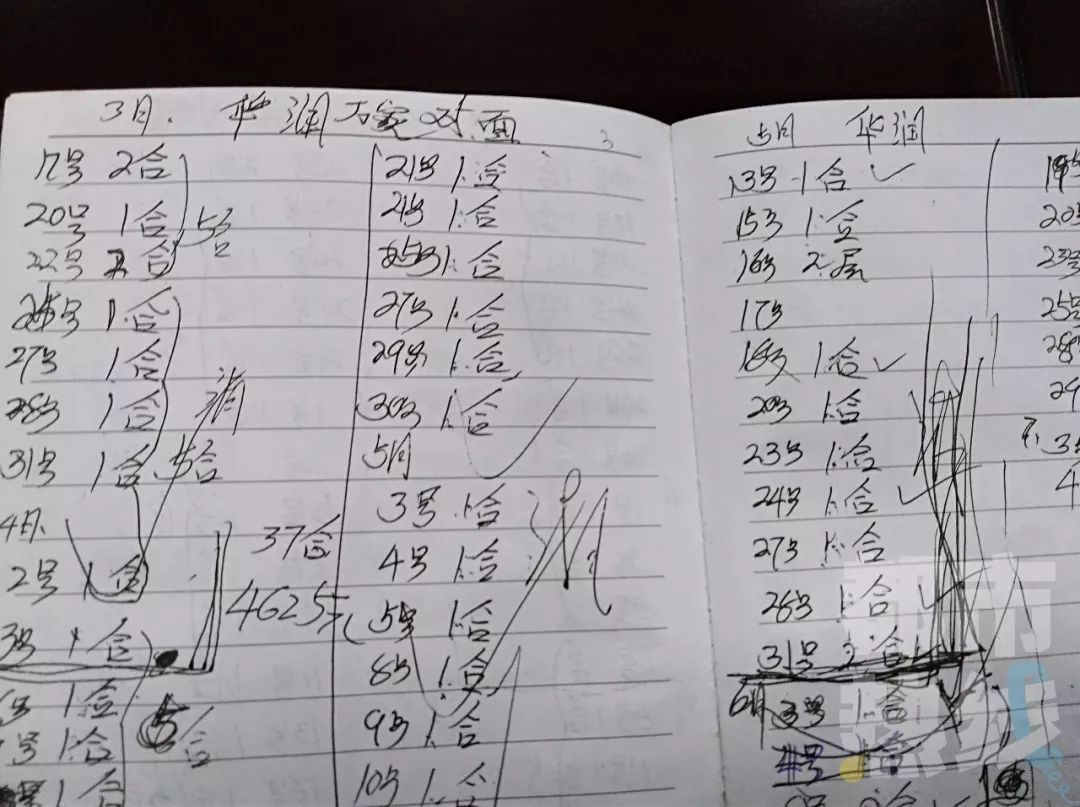 3月. 华润万家对面
17号 2合
20号 1合
5合
22号 2合
25号 1合
27号 1合
28号 1合
31号 1合 5合
4月
2号 1合
3号 1合
37合
4625元
号 1合
号 1合
5合
号 1合
21号 1合
24号 1合
25号 1合
27号 1合
29号 1合
30号 1合
5月
3号 1合
4号 1合
5号 1合
8号 1合
9号 1合
10号 1合
3
5月 华润
13号 1合 ✓
15号 1合
16号
17号
18号 1合 ✓
20号 1合
23号 1合
24号 1合 ✓
27号 1合
28号 1合
31号 2合
6月 3号 1合
4号 1合
19号
20号
23号
25号
28号
29
都市热线